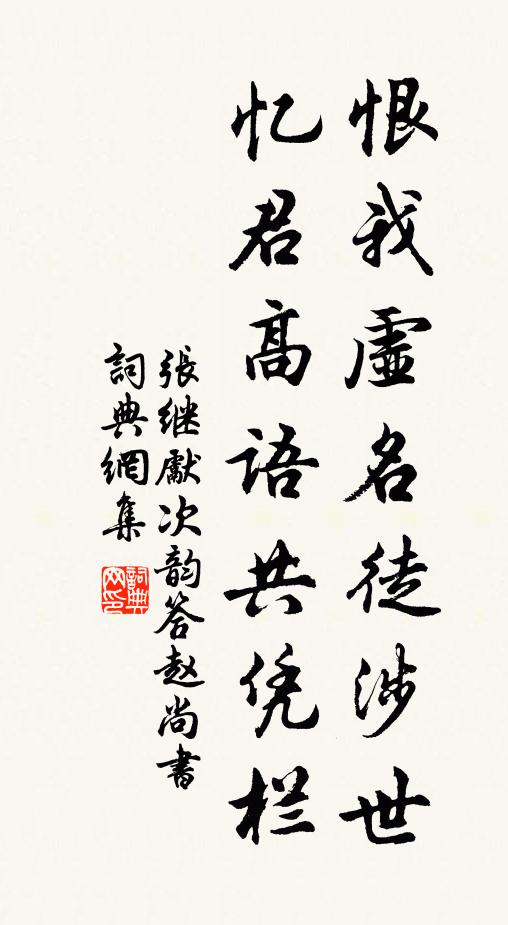 恨我虚名徒涉世
忆君高语共凭栏
張继獻次韵答赵尚書
詞典網集
詞典網印